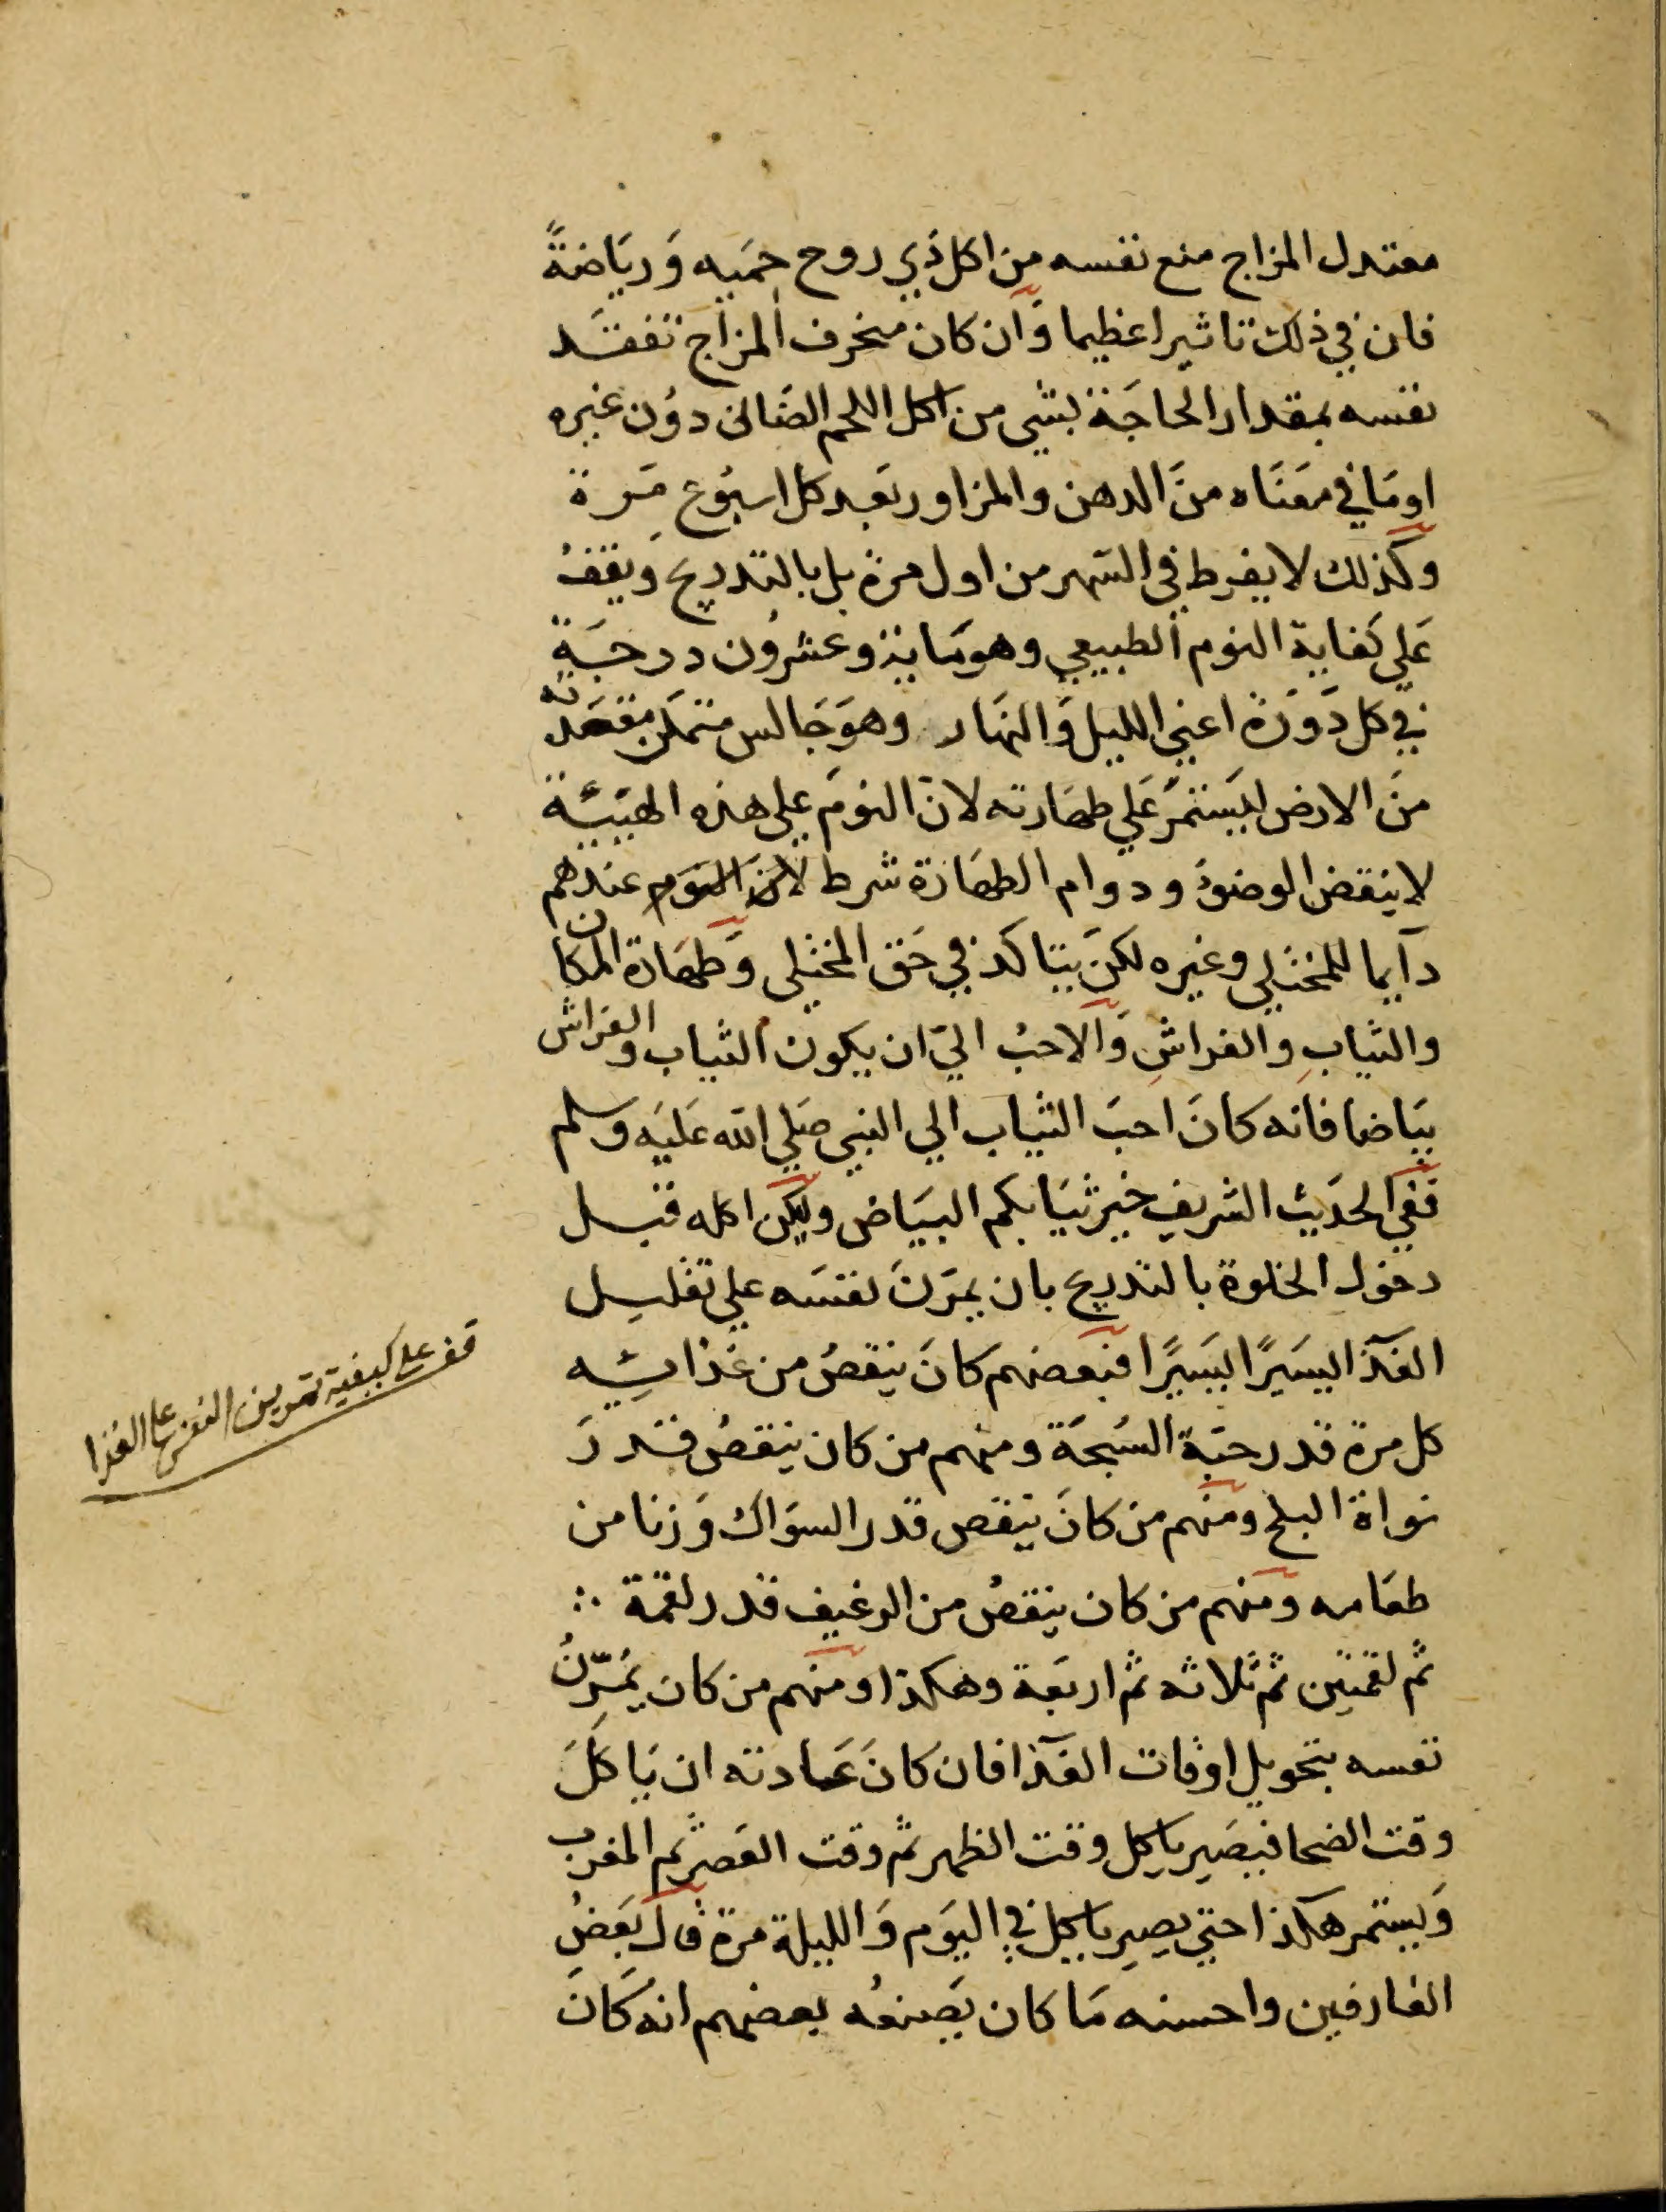 معتدل المزاج منع نفسه من اكل ذي روح حميه وَريَاضةً
فان في ذلك تاثيرا عظيما وَان كان منحرف المزاج تفقد
نفسه بمقدار الحاجَة بشي من اكل اللحم الضَاني دوُن غيره
اومَا في معنَاه منَ الدهن والمزاور بَعد كل اسبُوع مَرة
وكذلك لا يفرط في السَهر من اول مرة بل بالتدريج ويَقفُ
عَلي كفاية النوم الطبيعي وهو مَاية وعشرُون درجَة
في كل دَورَة اعني الليل وَالنهَار وهوَ جَالس متمكن مقعدته
منَ الارض ليَستمرَ عَلي طهَارته لانَ النومَ علي هذه الهيَئَة
لا ينقض الوضوءَ ودوام الطهَارة شرط لان النوم عندهم
دآيما للمختلي وغيره لكن يَتاكد في حَق المختلي وَطهَارة المكان
والثيَابِ والفراشِ وَالاحبُ اليّ ان يكون الثياب والفراش
بيَاضا فانه كانَ احبَ الثيَاب الي النبي صَلي الله عَليَه وسلم
ففي الحدَيث الشريف خير ثيَابكم البيَاض وليكن اكله قبل
دخول الخلوة بالتدريج بان يمرّنَ نفسَه علي تقليل
الغذآ يسَيرًا يسَيرًا فبَعضهم كانَ ينقصُ من غذائِه
كل مرة قدر حبَة السُبحَة ومنهم من كان ينقصُ قدرَ
نواة البلح ومنهم من كانَ ينقص قدر السوَاك وَزنا من
طعَامه ومنهم من كان ينقصُ من الرغيف قدر لقمة ∴
ثم لقمتين ثم ثلاثه ثم اربعَة وهكذا ومنهم من كان يُمَرّنُ
نفسه بتحويل اوقات الغذآ فان كانَ عَادته ان يَاكلَ
وقت الضحا فيصَير ياكل وقت الظهر ثم وقت العَصر ثم المغرب
وَيستمر هكذا حتي يصِير ياكل في اليَوم وَالليلة مرة قال بَعضُ
العَارفين واحسنه مَا كان يَصنعُه بعضهم انه كَانَ
قف على كيفية تمرين النفس على الغذا